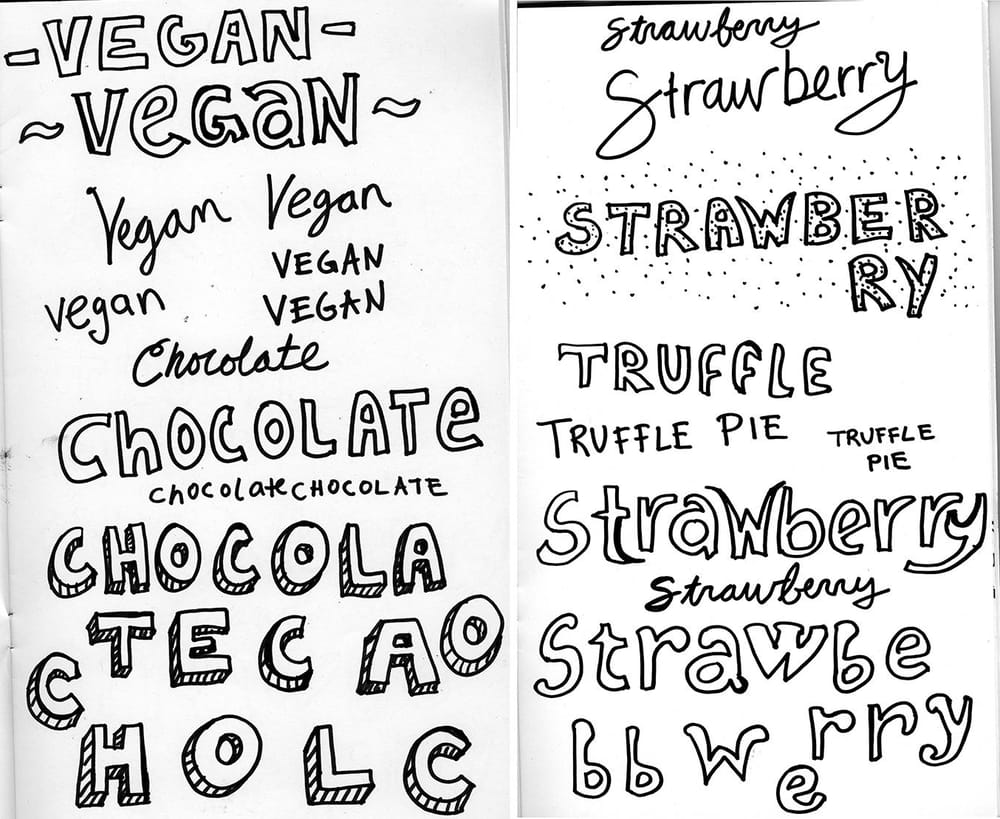 -VEGAN-
~VeGaN~
Vegan Vegan
VEGAN
vegan VEGAN
Chocolate
CHOCOLATe
chocolate CHOCOLATE
CHOCOLA
TE C A O
C
H O L C
Strawberry
Strawberry
STRAWBER
RY
TRUFFLE
TRUFFLE PIE TRUFFLE
PIE
Strawberry
Strawberry
Strawbe
bbw erry